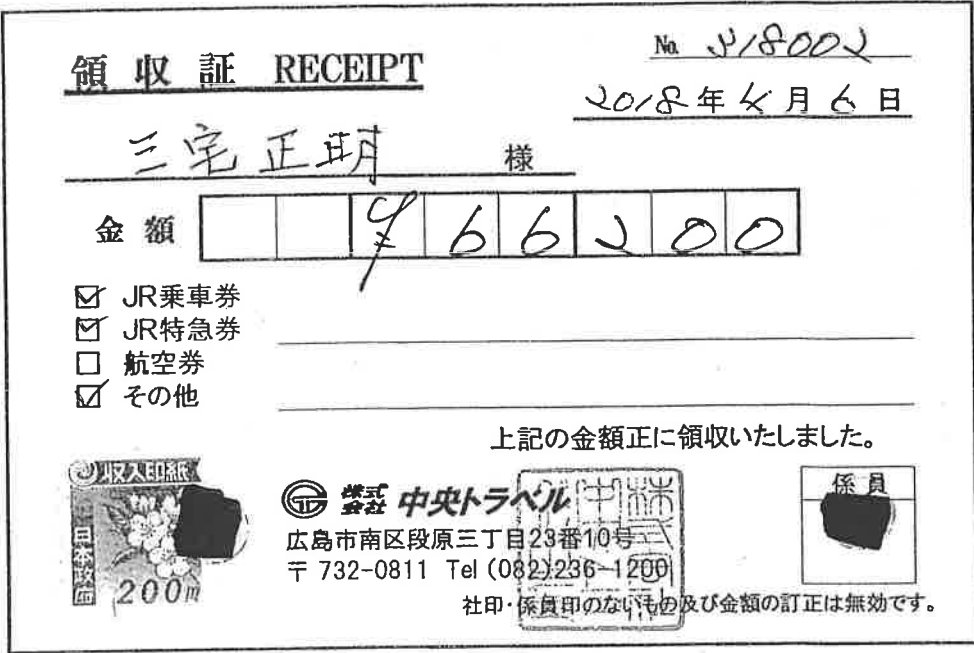 No. 318002
領収証 RECEIPT
2018年4月6日
三宅正明 様
金額 ¥66200
☑ JR乗車券
☑ JR特急券
☐ 航空券
☑ その他
上記の金額正に領収いたしました。
収入印紙
日本政府
200円
株式会社 中央トラベル
係員
広島市南区段原三丁目23番10号
〒732-0811 Tel (082)236-1200
社印・係員印のないもの及び金額の訂正は無効です。